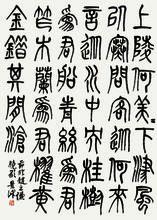 上陵何美美下津風
以寒問客從何來
言從水中央桂樹
為君船青絲為君
笮木蘭為君櫂黃
金錯其間滄